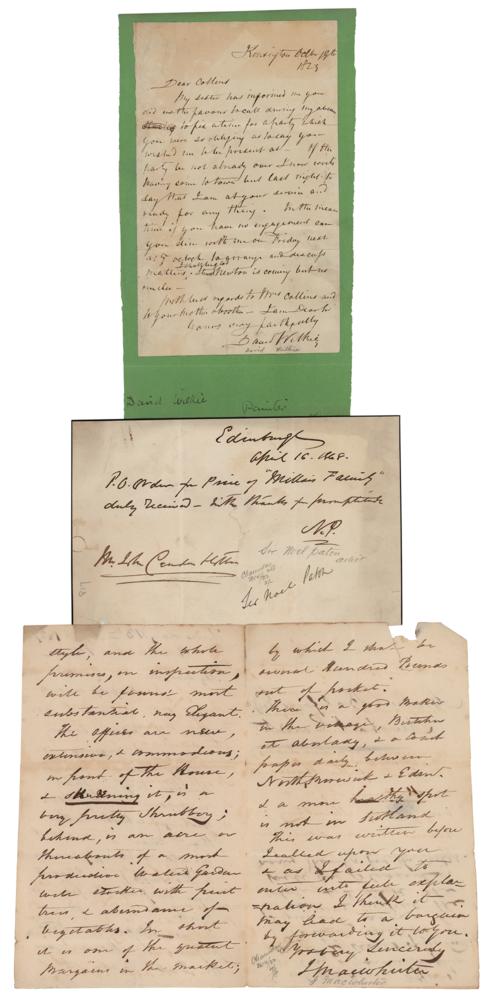 Kensington Octbr 18th
1823
Dear Collins
My sister has informed me you
did us the favour to call during my absence
to fix a time for a party which
you were so obliging as to say you
wished me to be present at – If the
party be not already over I now write
having come to town but last night to
say that I am at your service and
ready for any thing. In the mean
time if you have no engagement can
you dine with me on Friday next
at 5 o'clock to arrange and discuss
matters. Newton is coming but no
others –
With best regards to Mrs Collins and
to your Mother & brother – I am Dear Sir
Yours very faithfully
David Wilkie
David Wilkie
David Wilkie Painter
Edinburgh
April 16. 1868.
P.O. Order for Price of "Millais Family"
duly received – with thanks for promptitude
N.P.
Sir Noel Paton
artist
Mr. John Camden Hotten
Sir Noel Paton
style, and the whole
premises, on inspection,
will be found most
substantial, nay Elegant.
The offices are new,
extensive, & commodious;
in front of the House,
& it, is a
very pretty Shrubbery;
behind, is an acre or
thereabouts of a most
productive Walled Garden
well stocked with fruit
trees, & abundance of
vegetables. In short
it is one of the greatest
Bargains in the market;
by which I shall be
several Hundred Pounds
out of pocket.
There is a good Baker
in the village, Butcher
at Aberlady, & a Coach
passes daily between
North Berwick & Edinr.
& a more healthy spot
is not in Scotland
This was written before
I called upon you
& as I failed to
enter into full explan
ation I think it
may lead to a bargain
by forwarding it to you.
Yours very Sincerely
J MacWhirter
J MacWhirter